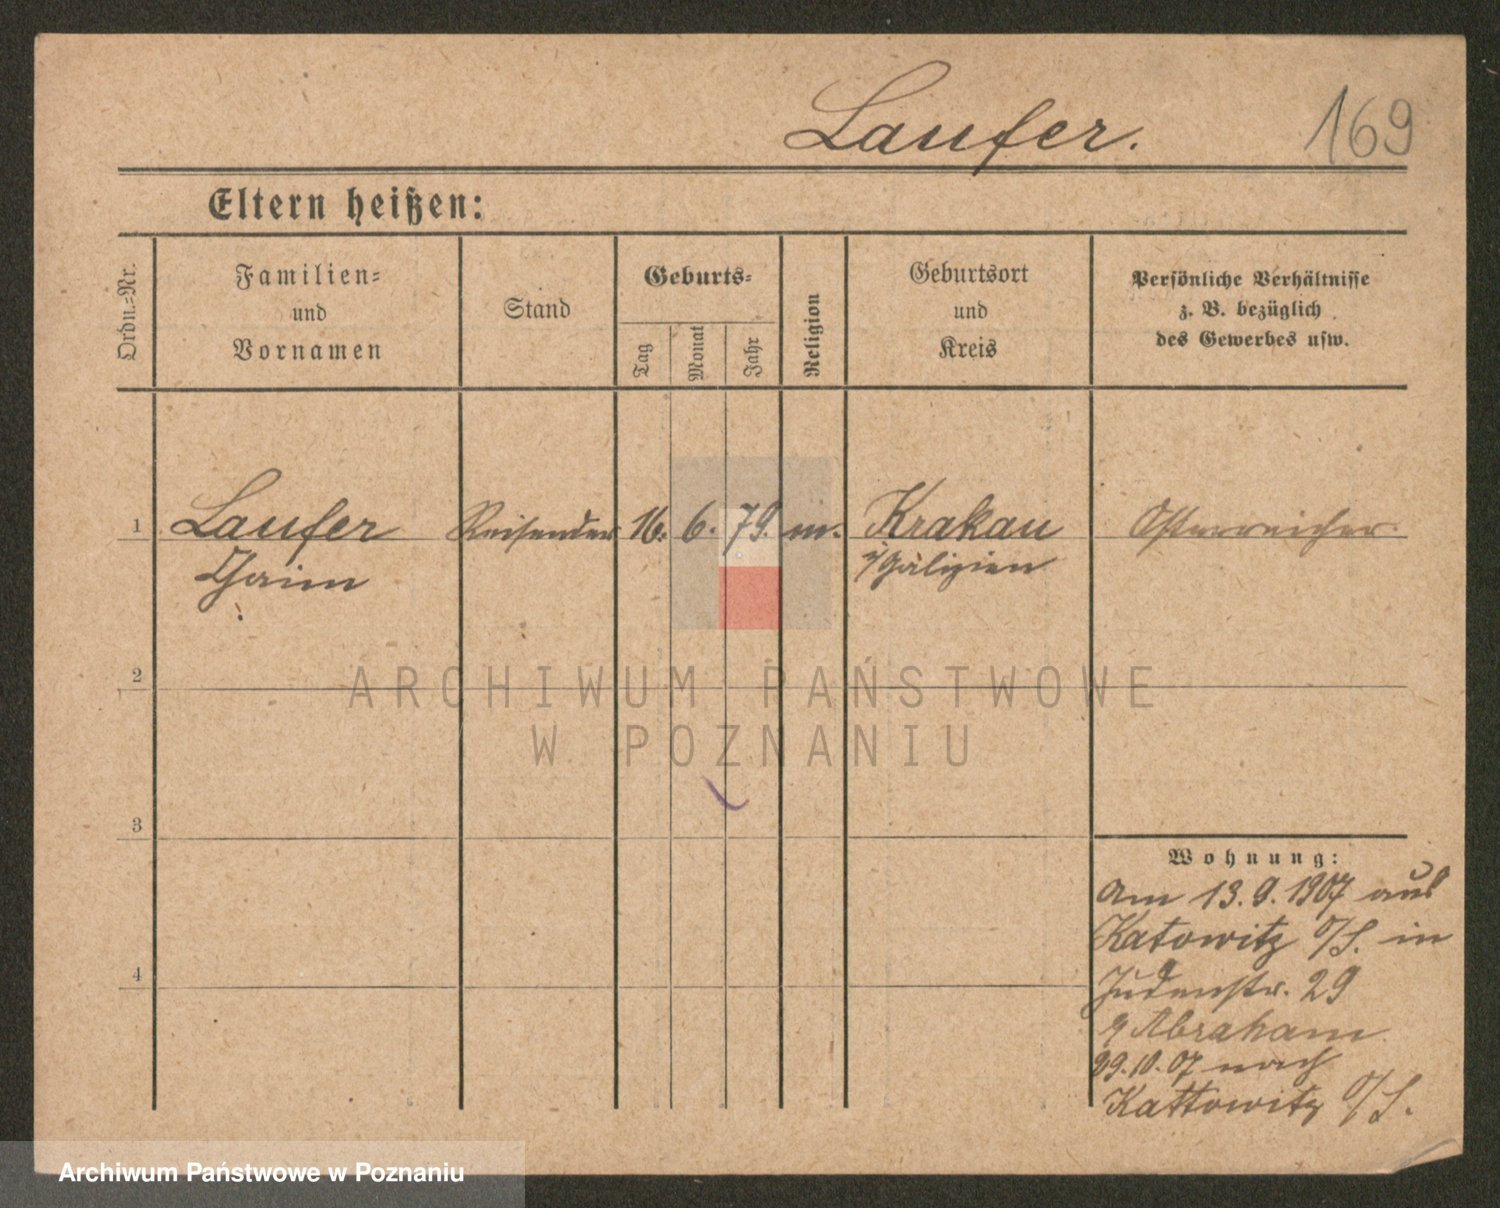 Laufer.
169
Eltern heißen:
Ordn.-Nr.
Familien-
und
Vornamen
Stand
Geburts-
Tag
Monat
Jahr
Religion
Geburtsort
und
Kreis
Persönliche Verhältnisse
z. B. bezüglich
des Gewerbes usw.
1 Laufer Reisender 16. 6. 79. m. Krakau Österreicher.
Chaim i/Galizien
2
ARCHIWUM PAŃSTWOWE
W POZNANIU
3
Wohnung:
Am 13.9.1907 aus
Katowitz O/S. in
4
Judenstr. 29
Abraham
29.10.07 nach
Kattowitz O/S.
Archiwum Państwowe w Poznaniu